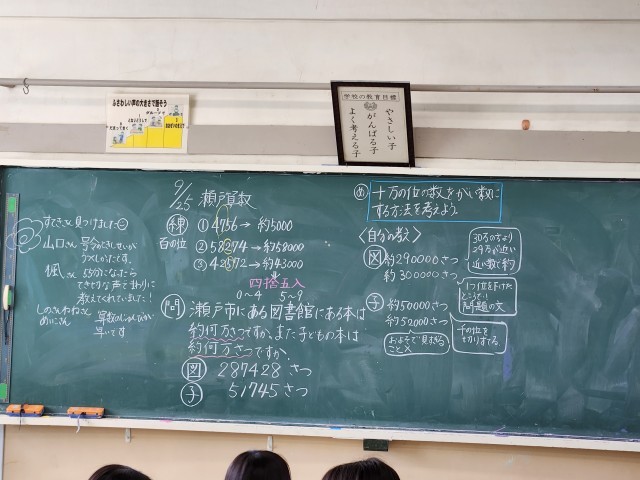 ふさわしい声の大きさで話そう
学校の教育目標
やさしい子
がんばる子
よく考える子
9/25 瀬戸賀数
すてきさん見つけました
山口さん
号令のしせいが
楓さん
8:50分になったら
教えてくれていました!
めいさん
早いです
練
百の位
① 4756→約5000
② 58274→約58000
③ 42572→約43000
四捨五入
0〜4 5〜9
問 瀬戸市にある図書館にある本は
約何万さつですか。また子どもの本は
約何万さつですか。
図 287428 さつ
子 51745 さつ
め 十万の位の数をがい数に
する方法を考えよう。
〈自分の考え〉
図 約290000さつ
約300000さつ
30万のちより
29万が近い
近い数で約
問題の文
子 約50000さつ
約52000さつ
千の位を
切りすてる
およそで見ずもる